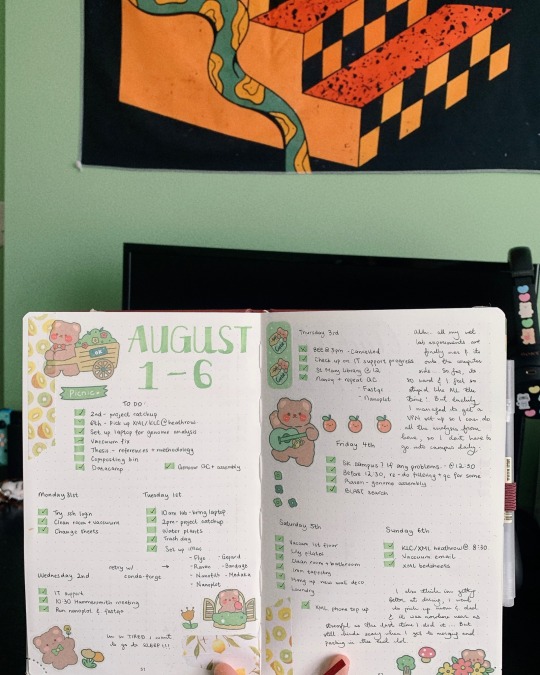 AUGUST
1-6
Picnic
TO DO:
2nd - project catchup
6th - Pick up XML/KLC @ heathrow
Set up laptop for genome analysis
Vaccum fix
Thesis - references + methodology
Composting bin
Datacamp
Genome QC + assembly
Monday 31st
Try ssh login
Clean room + vaccuum
Change sheets
Tuesday 1st
10am lab - bring laptop
2pm - project catchup
Water plants
Trash day
Set up
- Flye - Gepard
- Raven - Bandage
- Nanofilt - Medaka
- Nanoplot
retry w/ conda-forge
Wednesday 2nd
IT support
10:30 Hammersmith meeting
Run nanoplot & fastqc
im so TIRED i want
to go to SLEEP!!!
Thursday 3rd
BEE @ 3pm - Cancelled
Check up on IT support progress
St Mary Library @ 12
Nanoq + repeat QC
- Fastqc
- Nanoplot
Ahh.. all my wet
lab experiments are
finally over & its
onto the computer
side. So far, its
so hard & I feel so
stupid like ALL the
time! But luckily
I managed to get a
VPN set up so I can do
all the analysis from
home, so I don't have to
go into campus daily.
Friday 4th
SK campus? If any problems - @ 12:30
Before 12:30, re-do filtering + qc for some
Raven - genome assembly
BLAST search
Saturday 5th
Vaccum 1st floor
Lily plates
Clean room + bathroom
Hang up new wall deco
Laundry
XML phone top up
Sunday 6th
KLC/XML heathrow @ 8:30
Vaccuum email
XML bedsheets
I also think im getting
better at driving, I went
to pick up mom & dad
& it was nowhere near as
stressful as the last time I did it ... But
still kinda scary when I get to merging and
parking in the car lot.